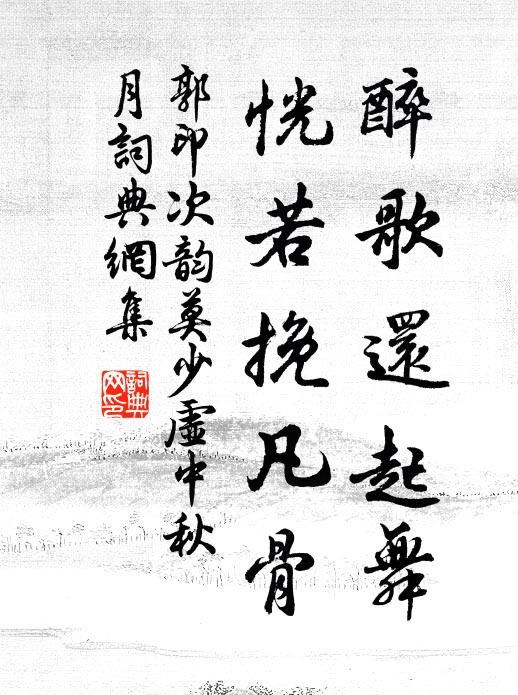 醉歌還起舞
恍若挽凡骨
郭印次韵莫少虛中秋
月詞典網集
詞典
网印